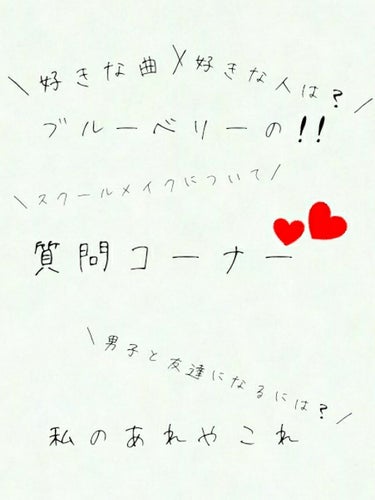 \好きな曲/好きな人は?/
ブルーベリーの!!
\スクールメイクについて/
質問コーナー
\男子と友達になるには?/
私のあれやこれ